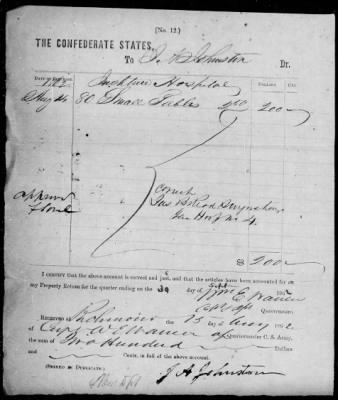 [No. 12.]
THE CONFEDERATE STATES,
To J. A. Johnston Dr.
DATE OF PURCHASE. DOLLARS CTS.
1862 Hospital
Aug 14 80 Small Tables 2.50 200
Correct
Gen Hospl No 4.
$200
I CERTIFY that the above account is correct and just; and that the articles have been accounted for on
my Property Return for the quarter ending on the 30 day of Sept 1862
Wm E Warren
Capt & AQM Quartermaster.
RECEIVED at Richmond the 15 of Aug 1862,
of Capt W E Warren Quartermaster C. S. Army,
the sum of Two Hundred Dollars
and Cents, in full of the above account.
[SIGNED IN DUPLICATE.]
J A Johnston